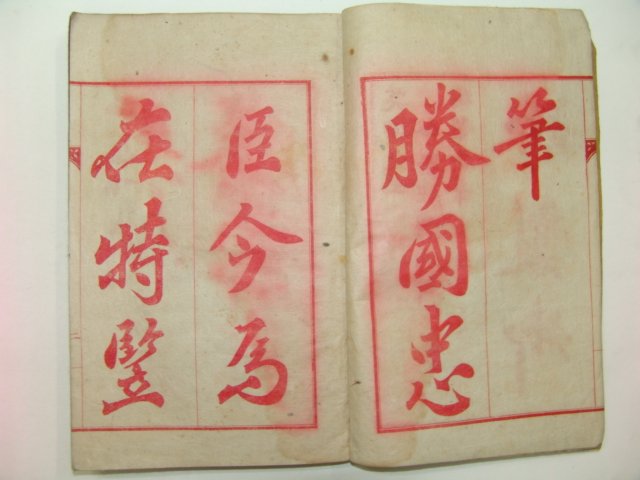 筆
勝國忠
臣今為
在特豎